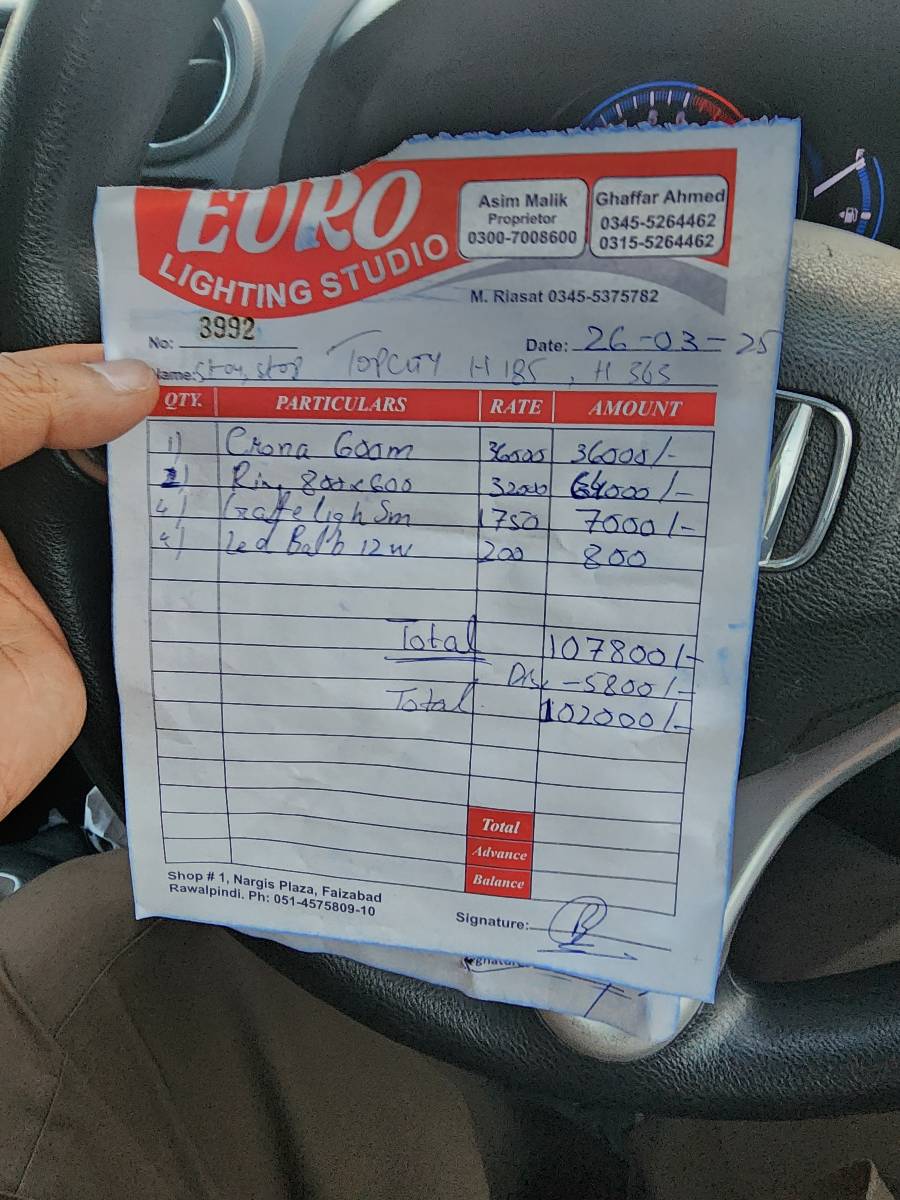 EURO
LIGHTING STUDIO
Asim Malik
Proprietor
0300-7008600
Ghaffar Ahmed
0345-5264462
0315-5264462
M. Riasat 0345-5375782
No: 3992
Date: 26-03-25
ame: Stop TOPCITY H 185, H 365
QTY. PARTICULARS RATE AMOUNT
1) Crona 600m 36000 36000/-
2) Ring 800x600 32000 64000/-
4) 1750 7000/-
4) Led Balb 12w 200 800
Total 107800/-
Dis -5800/-
Total 102000/-
Total
Advance
Balance
Shop # 1, Nargis Plaza, Faizabad
Rawalpindi. Ph: 051-4575809-10
Signature: